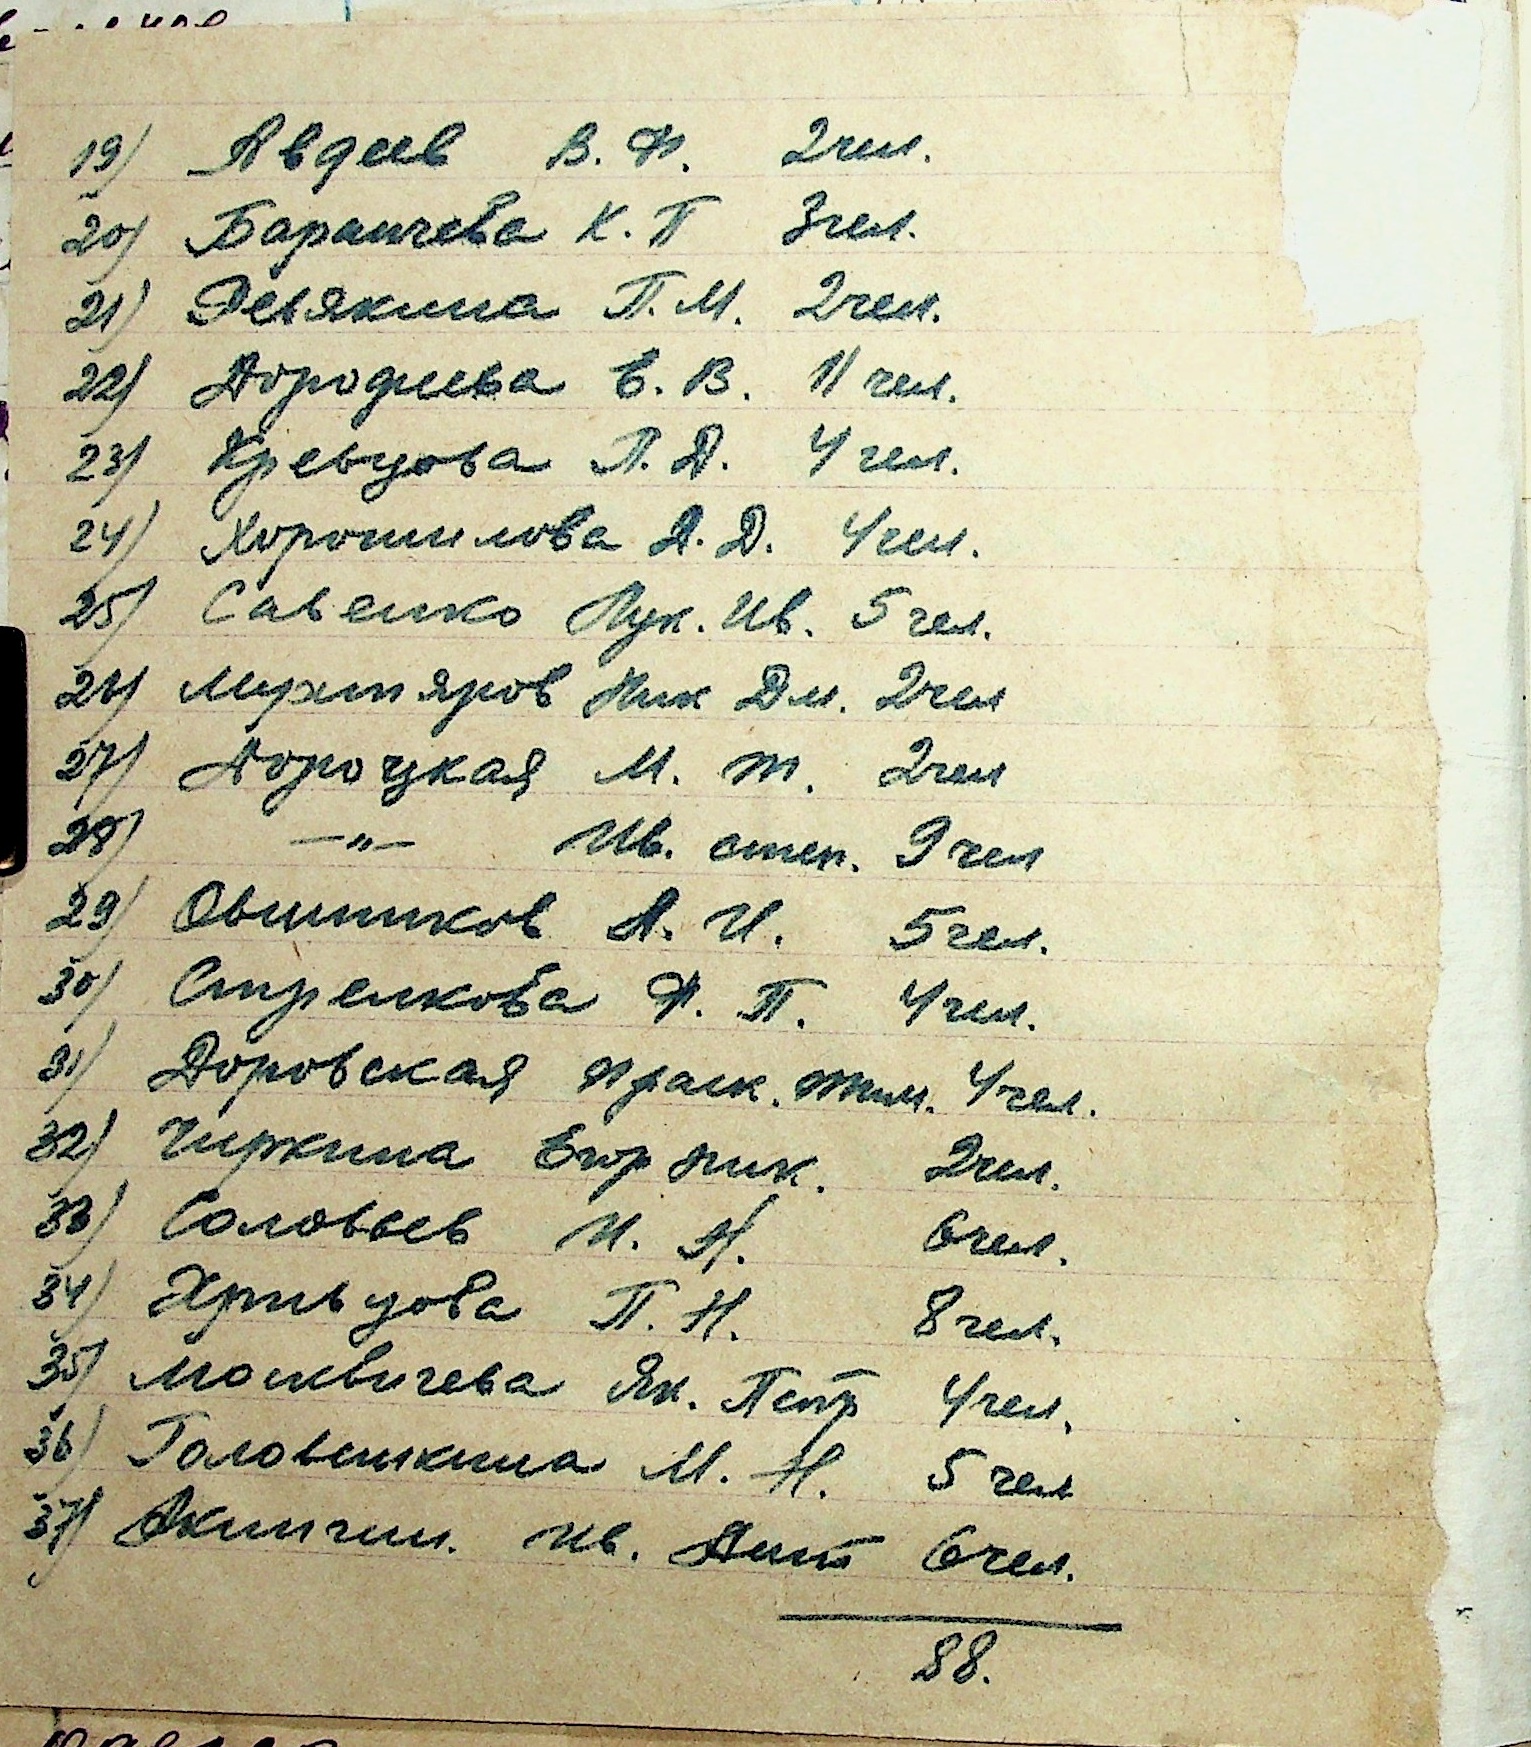 19) Авдеев В. Ф. 2 чел.
20) Баранчева К. П 3 чел.
21) Девякина П. М. 2 чел.
22) Дорофеева Е. В. 11 чел.
23) Кревцова П. Д. 4 чел.
24) Хорошилова А. Д. 4 чел.
25) Савенко Лук. Ив. 5 чел.
26) Мухтяров Ник Дм. 2 чел
27) Дороцкая М. Т. 2 чел
28) —"— Ив. степ. 9 чел
29) Овшиников А. И. 5 чел.
30) Стрелкова Ф. П. 4 чел.
31) Доровская Праск. Тим. 4 чел.
32) Чиркина Егор Ник. 2 чел.
33) Соловьев И. Н. 6 чел.
34) Кривцова П. Н. 8 чел.
35) Москвичева Як. Петр 4 чел.
36) Головешкина М. Н. 5 чел
37) Акинчин. Ив. Ант 6 чел.
88.